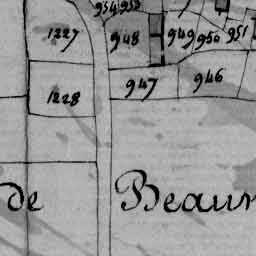 954 953
1227 948 949 950 951
1228 947 946
de Beaur